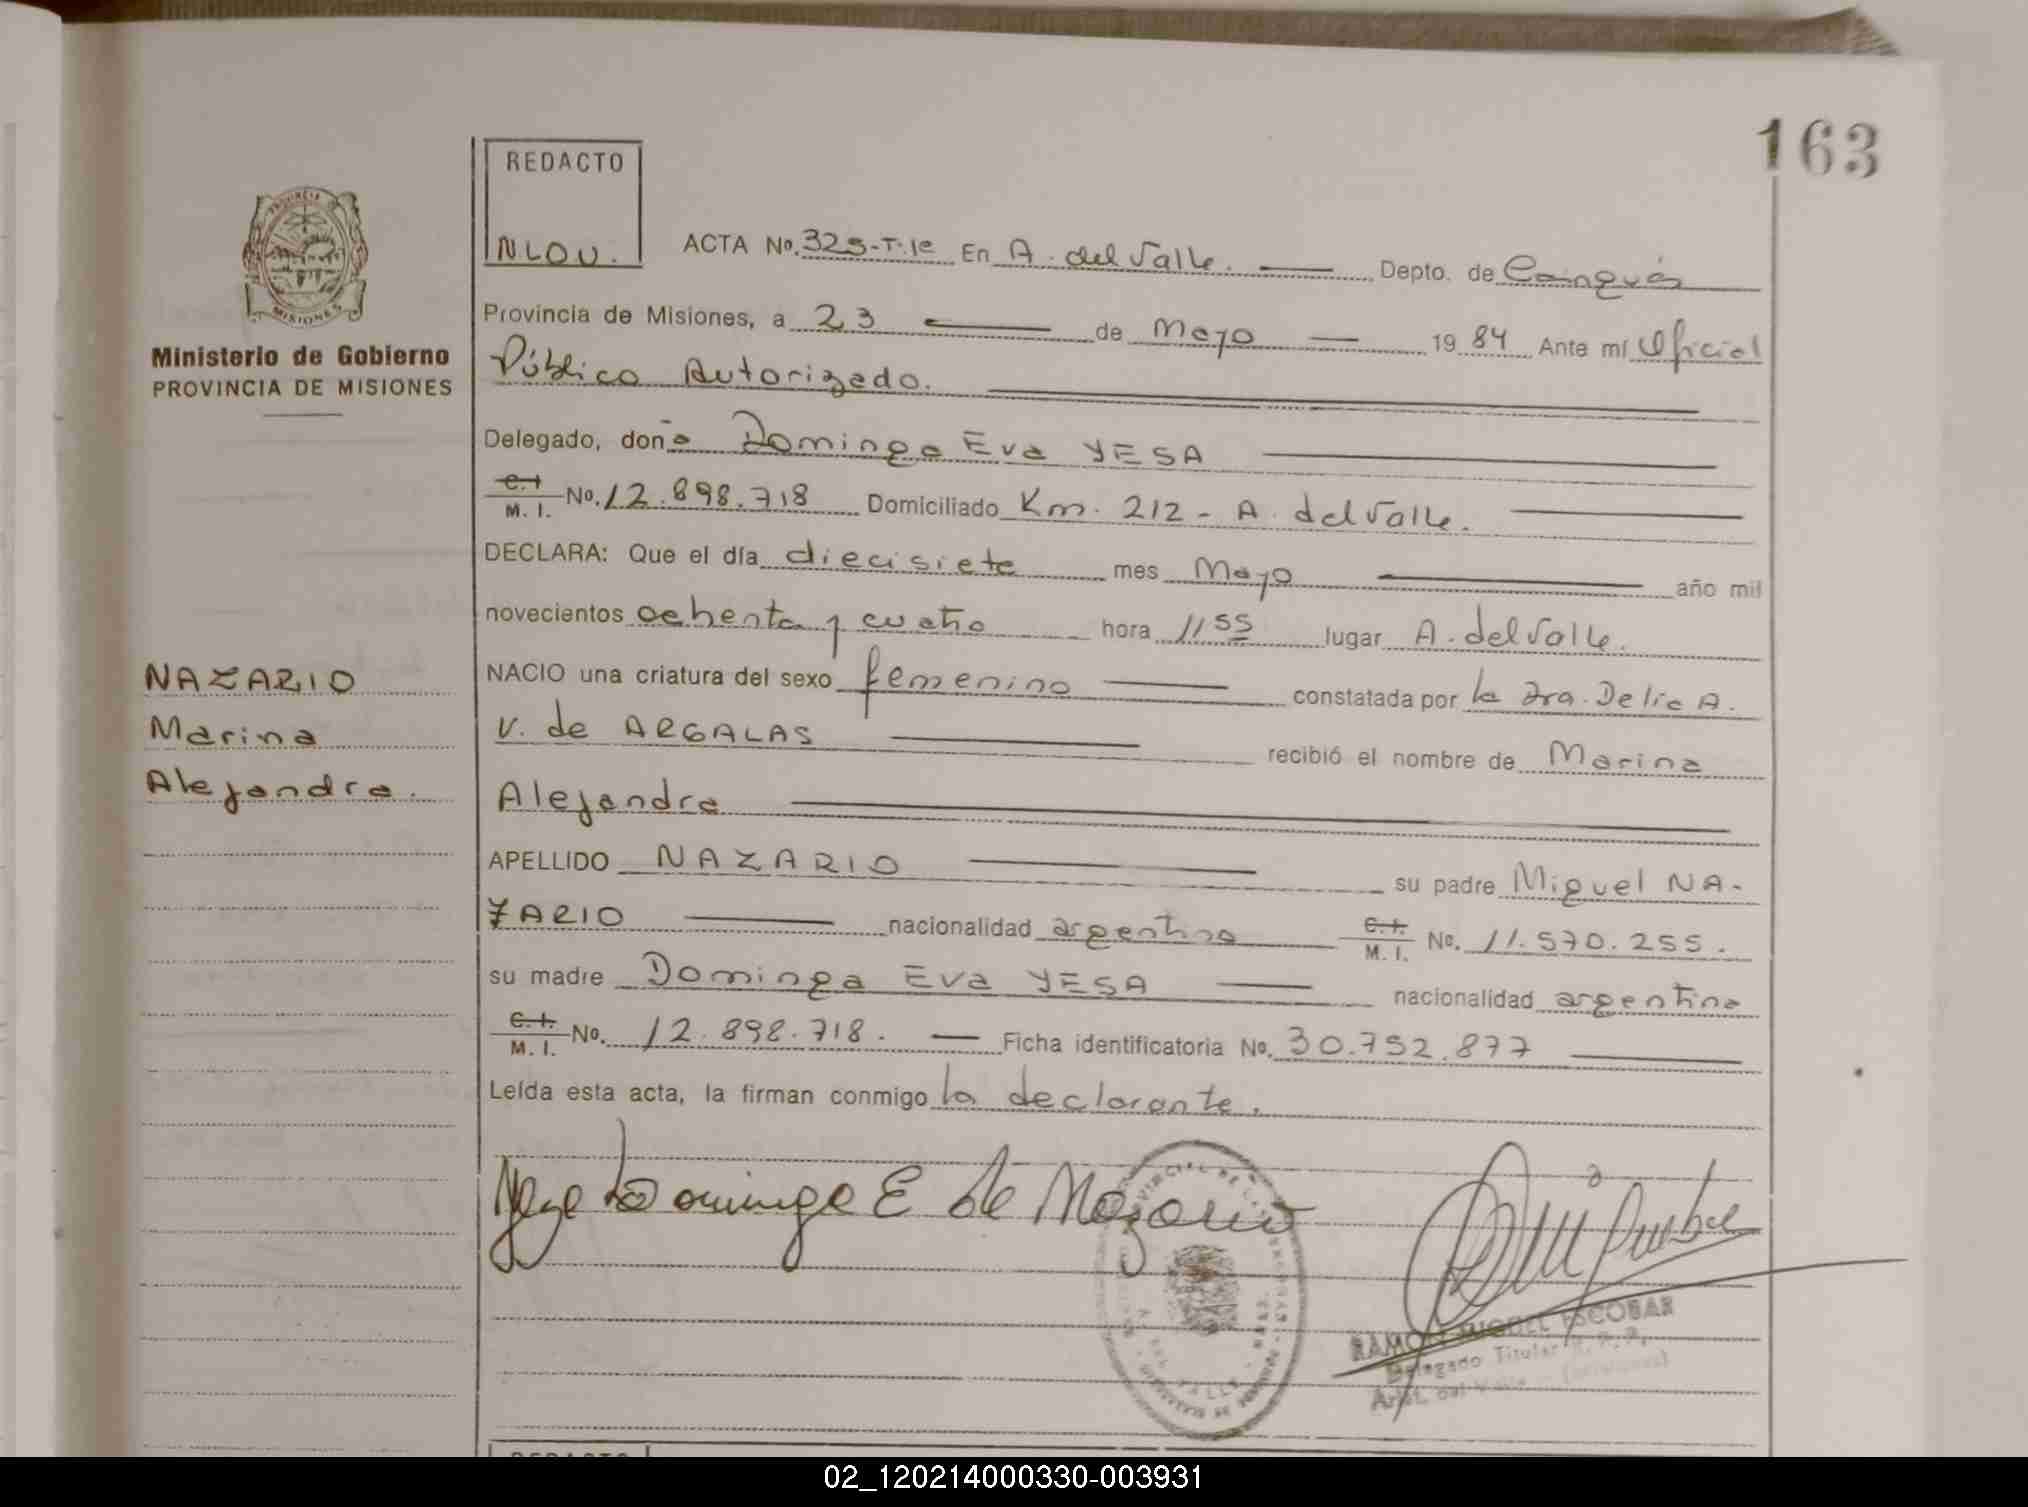 163
REDACTO
NLOV.
ACTA No. 325-T.1º En A. del Valle. Depto. de Cainguás
Provincia de Misiones, a 23 de Mayo 1984 Ante mí Oficial
Público Autorizado.
Delegado, doña Dominga Eva YESA
C.I. M. I. No. 12.898.718 Domiciliado Km. 212 - A. del Valle.
DECLARA: Que el día diecisiete mes Mayo año mil
novecientos ochenta y cuatro hora 11 55 lugar A. del Valle.
NACIO una criatura del sexo femenino constatada por la Dra. Delia A.
V. de ARGALAS recibió el nombre de Marina
Alejandra
APELLIDO NAZARIO su padre Miguel NA-
ZARIO nacionalidad argentina C.I. M. I. No. 11.570.255.
su madre Dominga Eva YESA nacionalidad argentina
C.I. M. I. No. 12.898.718. Ficha identificatoria No. 30.752.877
Leída esta acta, la firman conmigo la declarante.
Dominga E de
RAMON MIGUEL ESCOBAR
Delegado Titular
PROVINCIA
MISIONES
Ministerio de Gobierno
PROVINCIA DE MISIONES
NAZARIO
Marina
Alejandra.
02_120214000330-003931